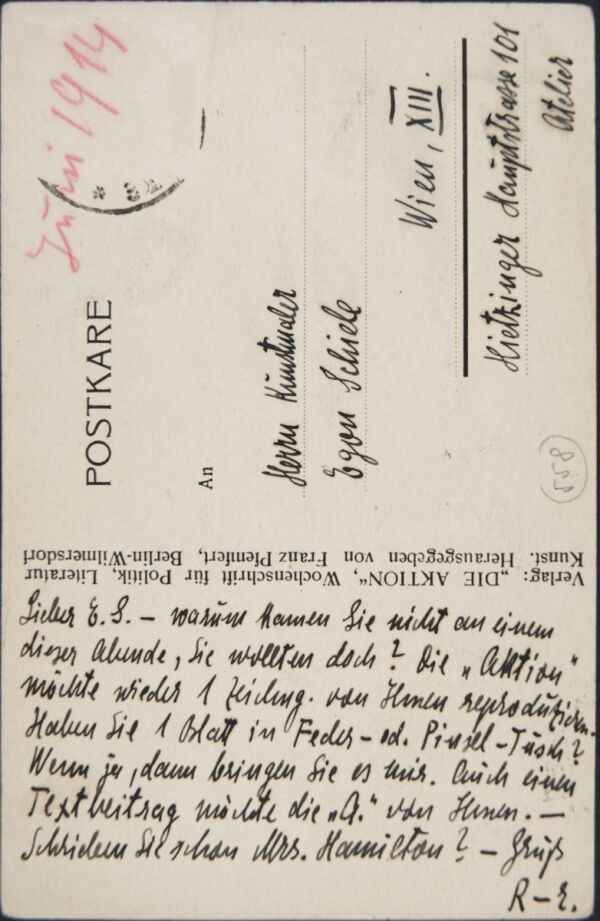 Juni 1914
POSTKARE
An
Herrn Kunstmaler
Egon Schiele
Wien, XIII.
Hietzinger Hauptstrasse 101
Atelier
558
Verlag: „DIE AKTION“, Wochenschrift für Politik, Literatur
Kunst. Herausgegeben von Franz Pfemfert, Berlin-Wilmersdorf
Lieber E. S. – warum kamen Sie nicht an einem
dieser Abende, Sie wollten doch? Die „Aktion“
möchte wieder 1 Zeichng. von Ihnen reproduzieren.
Haben Sie 1 Blatt in Feder- od. Pinsel-Tusch?
Wenn ja, dann bringen Sie es mir. Auch einen
Textbeitrag möchte die „A.“ von Ihnen. –
Schrieben Sie schon Mrs. Hamilton? – Gruß
R-r.